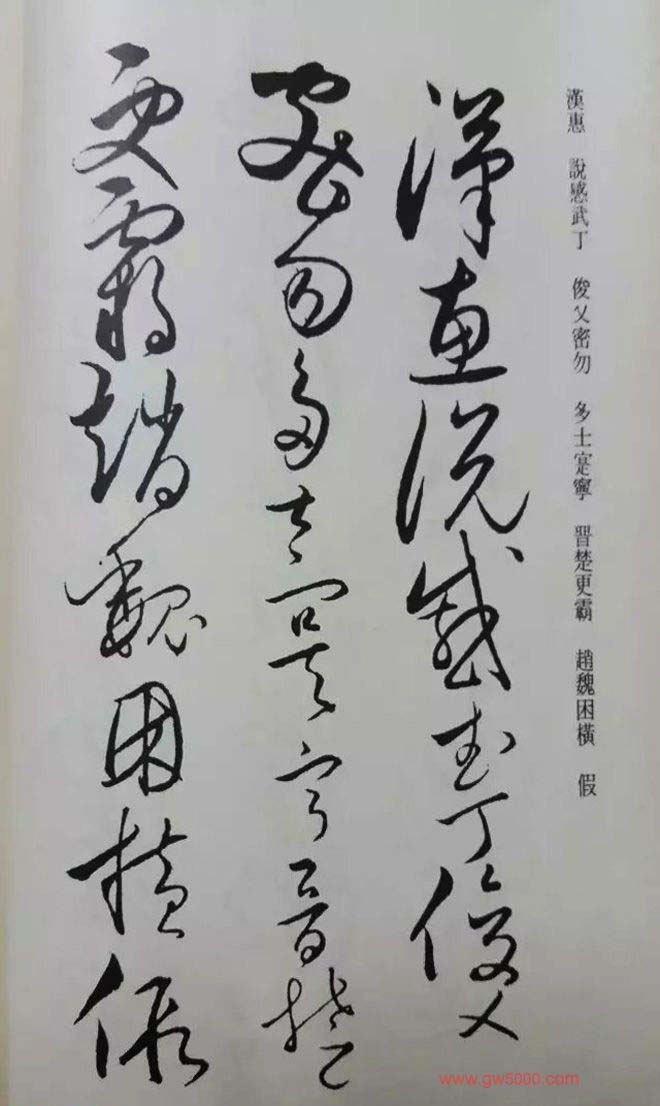 漢惠 說感武丁 俊乂密勿 多士寔寧 晉楚更霸 趙魏困橫 假
漢惠說感武丁俊乂
密勿多士寔寧晉楚
更霸趙魏困橫假
www.gw5000.com